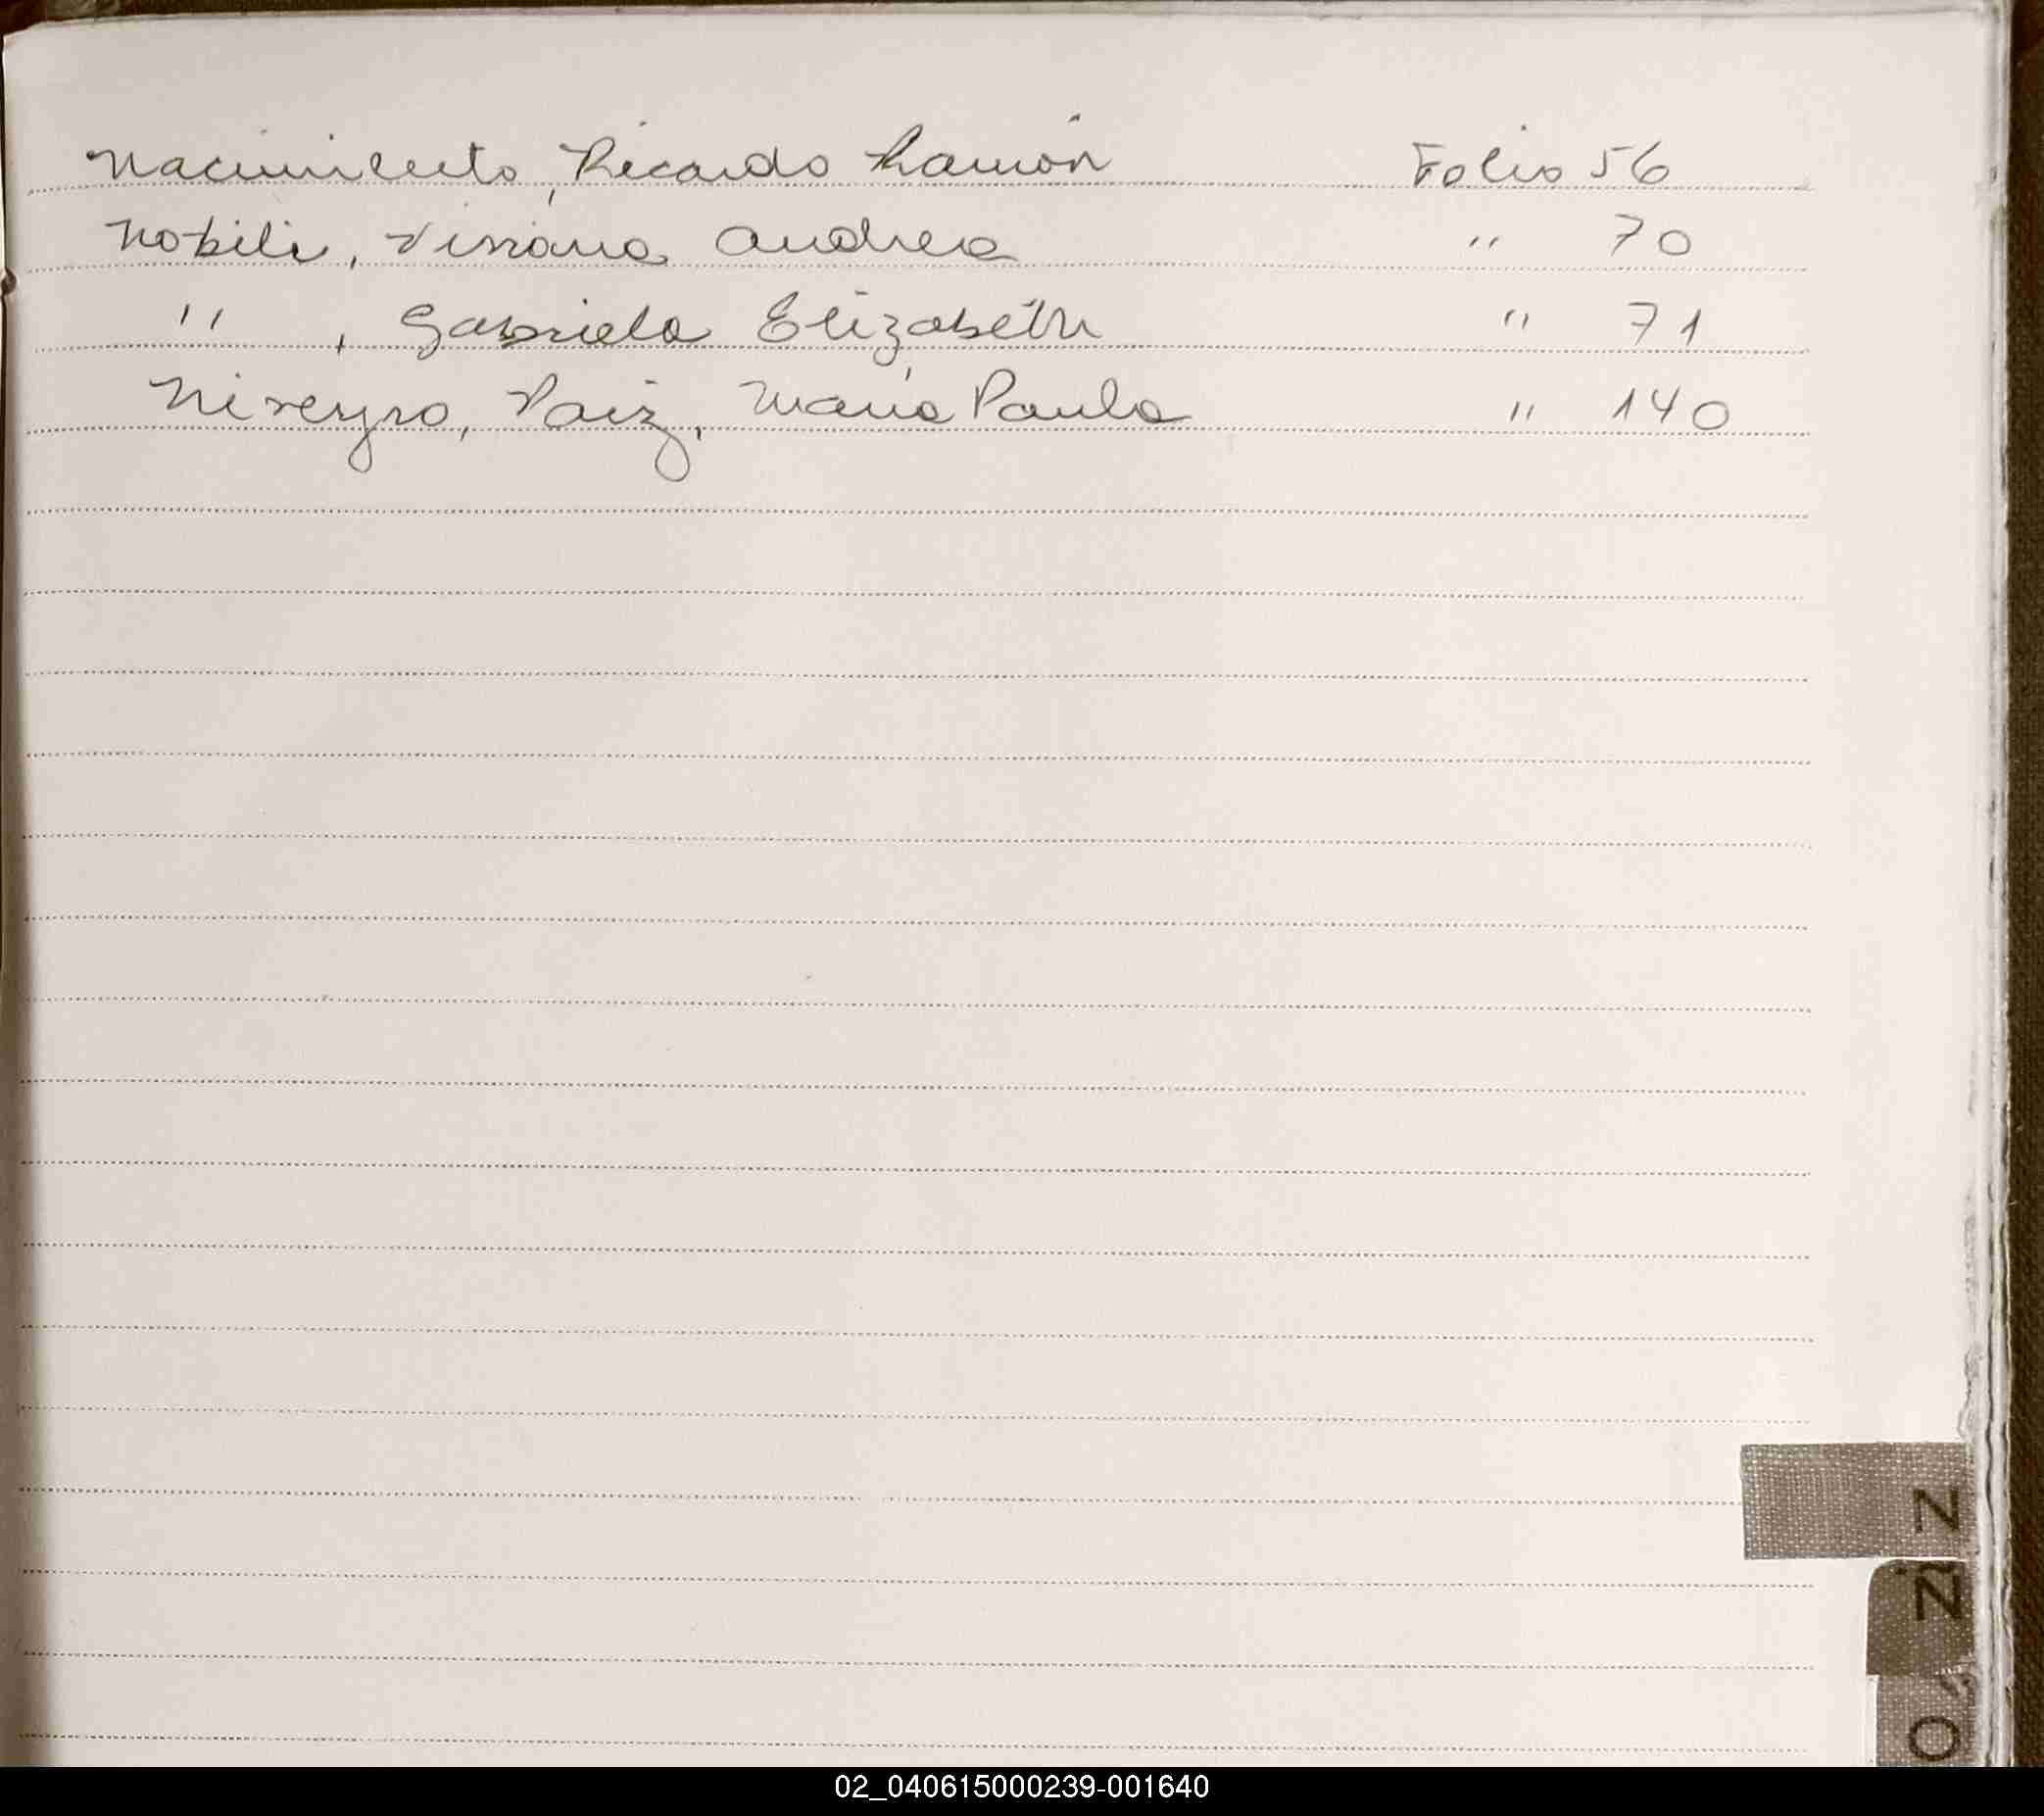 Nacimiento, Ricardo Ramón Folio 56
Nobili, Viviana Andrea " 70
" , Gabriela Elizabeth " 71
Niveyro, Paiz, María Paula " 140
N
Ñ
O
02_040615000239-001640